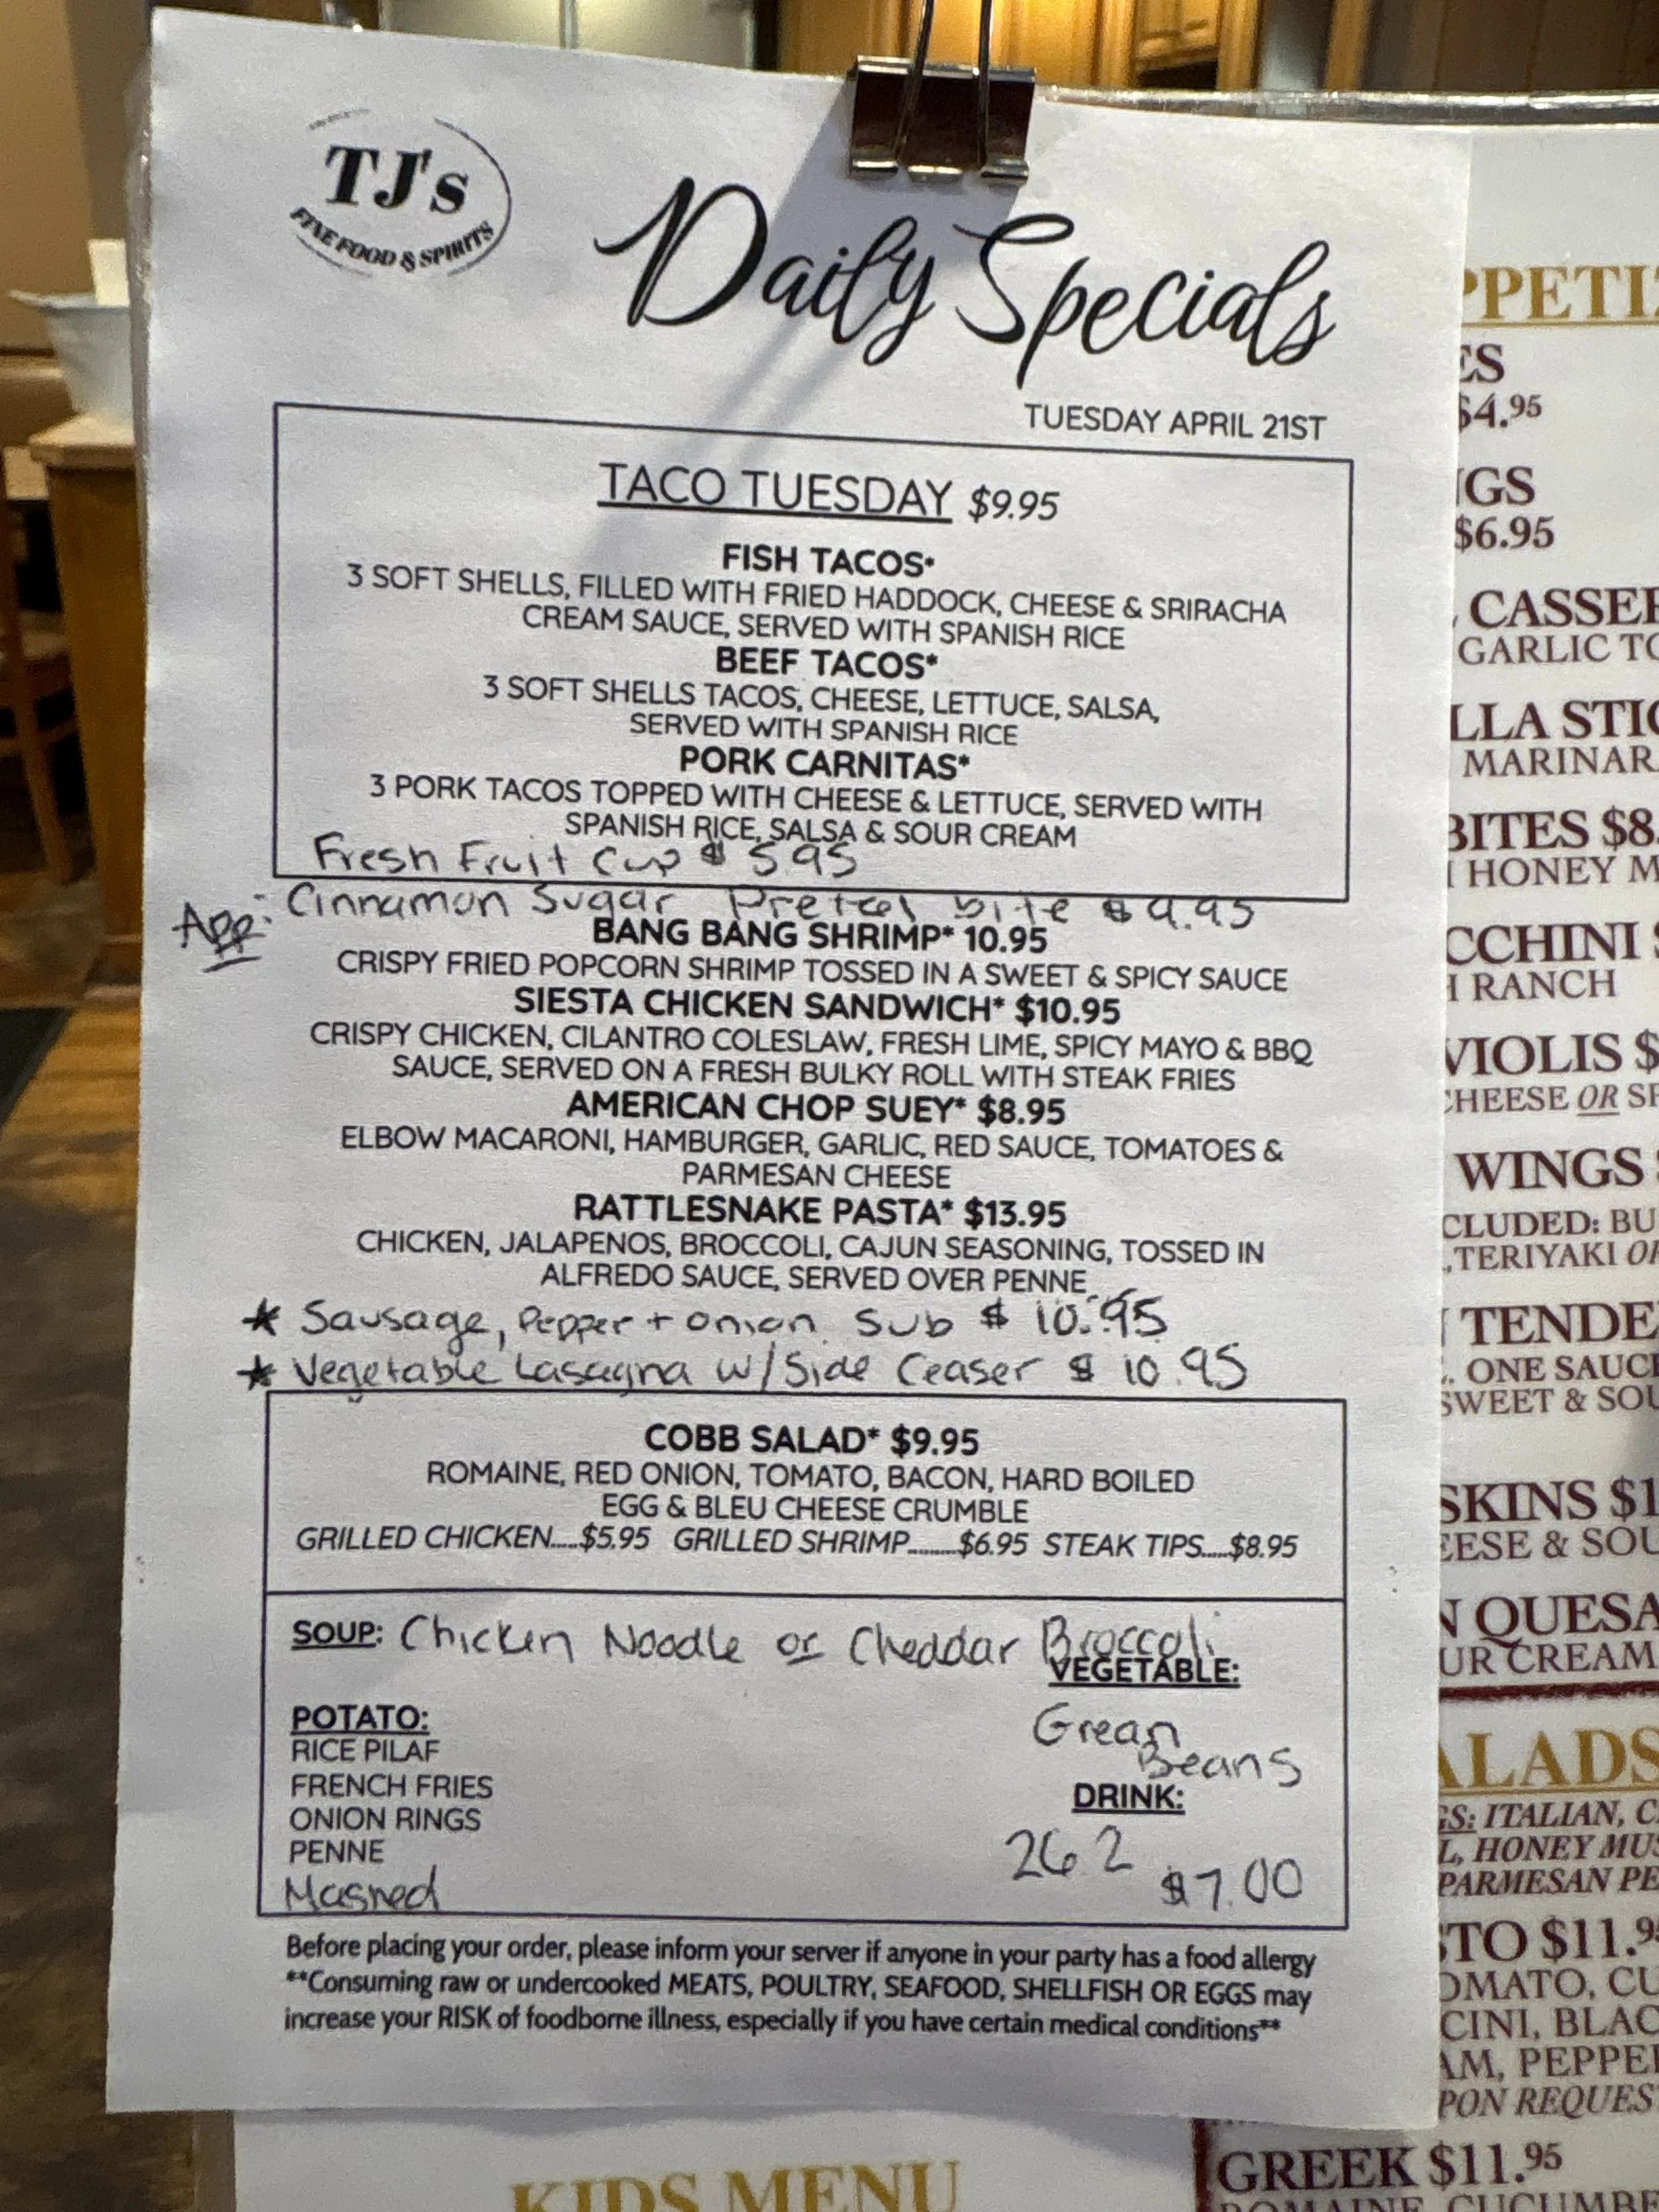 TJ's
FINE FOOD & SPIRITS
Daily Specials
TUESDAY APRIL 21ST
TACO TUESDAY $9.95
FISH TACOS*
3 SOFT SHELLS, FILLED WITH FRIED HADDOCK, CHEESE & SRIRACHA
CREAM SAUCE, SERVED WITH SPANISH RICE
BEEF TACOS*
3 SOFT SHELLS TACOS, CHEESE, LETTUCE, SALSA,
SERVED WITH SPANISH RICE
PORK CARNITAS*
3 PORK TACOS TOPPED WITH CHEESE & LETTUCE, SERVED WITH
SPANISH RICE, SALSA & SOUR CREAM
Fresh Fruit Cup $ 5.95
App: Cinnamon Sugar Pretzel bite $9.95
BANG BANG SHRIMP* 10.95
CRISPY FRIED POPCORN SHRIMP TOSSED IN A SWEET & SPICY SAUCE
SIESTA CHICKEN SANDWICH* $10.95
CRISPY CHICKEN, CILANTRO COLESLAW, FRESH LIME, SPICY MAYO & BBQ
SAUCE, SERVED ON A FRESH BULKY ROLL WITH STEAK FRIES
AMERICAN CHOP SUEY* $8.95
ELBOW MACARONI, HAMBURGER, GARLIC, RED SAUCE, TOMATOES &
PARMESAN CHEESE
RATTLESNAKE PASTA* $13.95
CHICKEN, JALAPENOS, BROCCOLI, CAJUN SEASONING, TOSSED IN
ALFREDO SAUCE, SERVED OVER PENNE
* Sausage, Pepper + onion Sub $ 10.95
* Vegetable Lasagna w/Side Ceaser $ 10.95
COBB SALAD* $9.95
ROMAINE, RED ONION, TOMATO, BACON, HARD BOILED
EGG & BLEU CHEESE CRUMBLE
GRILLED CHICKEN.....$5.95 GRILLED SHRIMP.........$6.95 STEAK TIPS.....$8.95
SOUP: Chicken Noodle or Cheddar Broccoli
VEGETABLE:
Grean
Beans
POTATO:
RICE PILAF
FRENCH FRIES
ONION RINGS
PENNE
Mashed
DRINK:
26.2
$7.00
Before placing your order, please inform your server if anyone in your party has a food allergy
**Consuming raw or undercooked MEATS, POULTRY, SEAFOOD, SHELLFISH OR EGGS may
increase your RISK of foodborne illness, especially if you have certain medical conditions**
PPETIZ
ES
$4.95
NGS
$6.95
CASSER
GARLIC TO
LLA STIC
MARINAR
BITES $8.
HONEY M
CCHINI $
H RANCH
VIOLIS $
CHEESE OR SP
WINGS $
CLUDED: BU
,TERIYAKI OR
TENDE
. ONE SAUCE
SWEET & SOU
SKINS $1
EESE & SOU
N QUESA
UR CREAM
ALADS
GS: ITALIAN, C
L, HONEY MUS
PARMESAN PE
STO $11.95
OMATO, CU
CINI, BLAC
AM, PEPPE
PON REQUEST
GREEK $11.95
ROMAINE, CUCUMBE
KIDS MENU